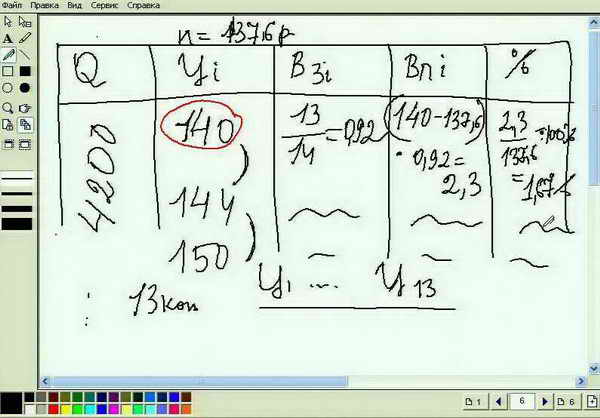 Файл Правка Вид Сервис Справка
n = 137,6 р
Q Yi Bзi Bпi %
4200 140 13/14 = 0,92 (140-137,6) · 0,92 = 2,3 2,3/137,6 · 100% = 1,67%
144
150
13 коп Y1 ... Y13
1 6 6